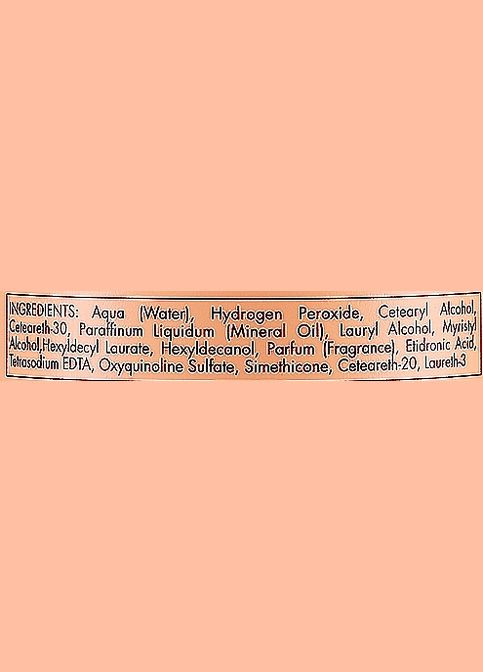 INGREDIENTS: Aqua (Water), Hydrogen Peroxide, Cetearyl Alcohol,
Ceteareth-30, Paraffinum Liquidum (Mineral Oil), Lauryl Alcohol, Myristyl
Alcohol,Hexyldecyl Laurate, Hexyldecanol, Parfum (Fragrance), Etidronic Acid,
Tetrasodium EDTA, Oxyquinoline Sulfate, Simethicone, Ceteareth-20, Laureth-3